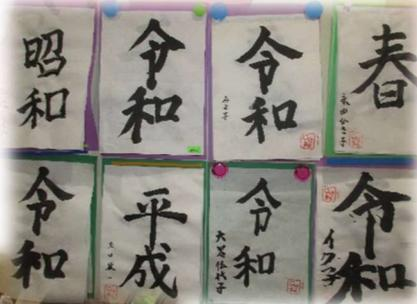 昭和
令和
令和
みよ子
春
令和
平成
令和
令和
イク子